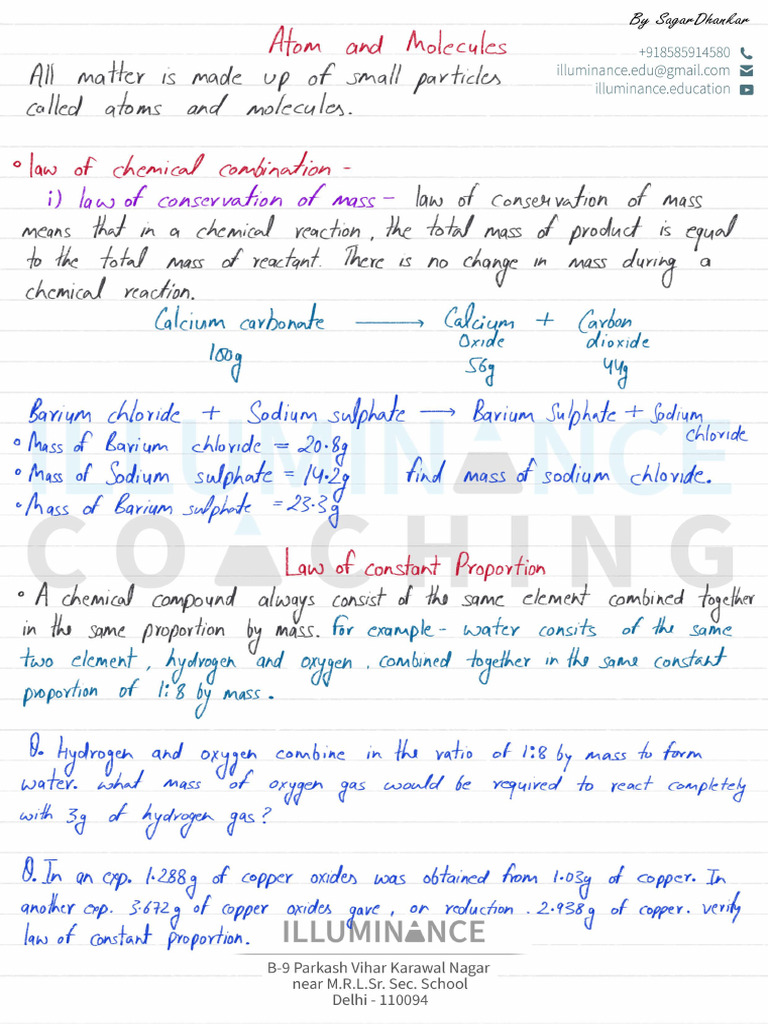 By SagarDhankar
Atom and Molecules
+918585914580
All matter is made up of small particles
illuminance.edu@gmail.com
illuminance.education
called atoms and molecules.
• law of chemical combination -
i) law of conservation of mass - law of conservation of mass
means that in a chemical reaction, the total mass of product is equal
to the total mass of reactant. There is no change in mass during a
chemical reaction.
Calcium carbonate ⟶ Calcium + Carbon
Oxide dioxide
100g 56g 44g
Barium chloride + Sodium sulphate ⟶ Barium Sulphate + Sodium
chloride
• Mass of Barium chloride = 20.8g
• Mass of Sodium sulphate = 14.2g find mass of sodium chloride.
• Mass of Barium sulphate = 23.3g
ILLUMINANCE
COACHING
Law of constant Proportion
• A chemical compound always consist of the same element combined together
in the same proportion by mass. For example - water consits of the same
two element, hydrogen and oxygen, combined together in the same constant
proportion of 1:8 by mass.
Q. Hydrogen and oxygen combine in the ratio of 1:8 by mass to form
water. what mass of oxygen gas would be required to react completely
with 3g of hydrogen gas?
Q. In an exp. 1.288g of copper oxides was obtained from 1.03g of copper. In
another exp. 3.672g of copper oxides gave, on reduction. 2.938g of copper. verify
law of constant proportion.
ILLUMINANCE
B-9 Parkash Vihar Karawal Nagar
near M.R.L.Sr. Sec. School
Delhi - 110094